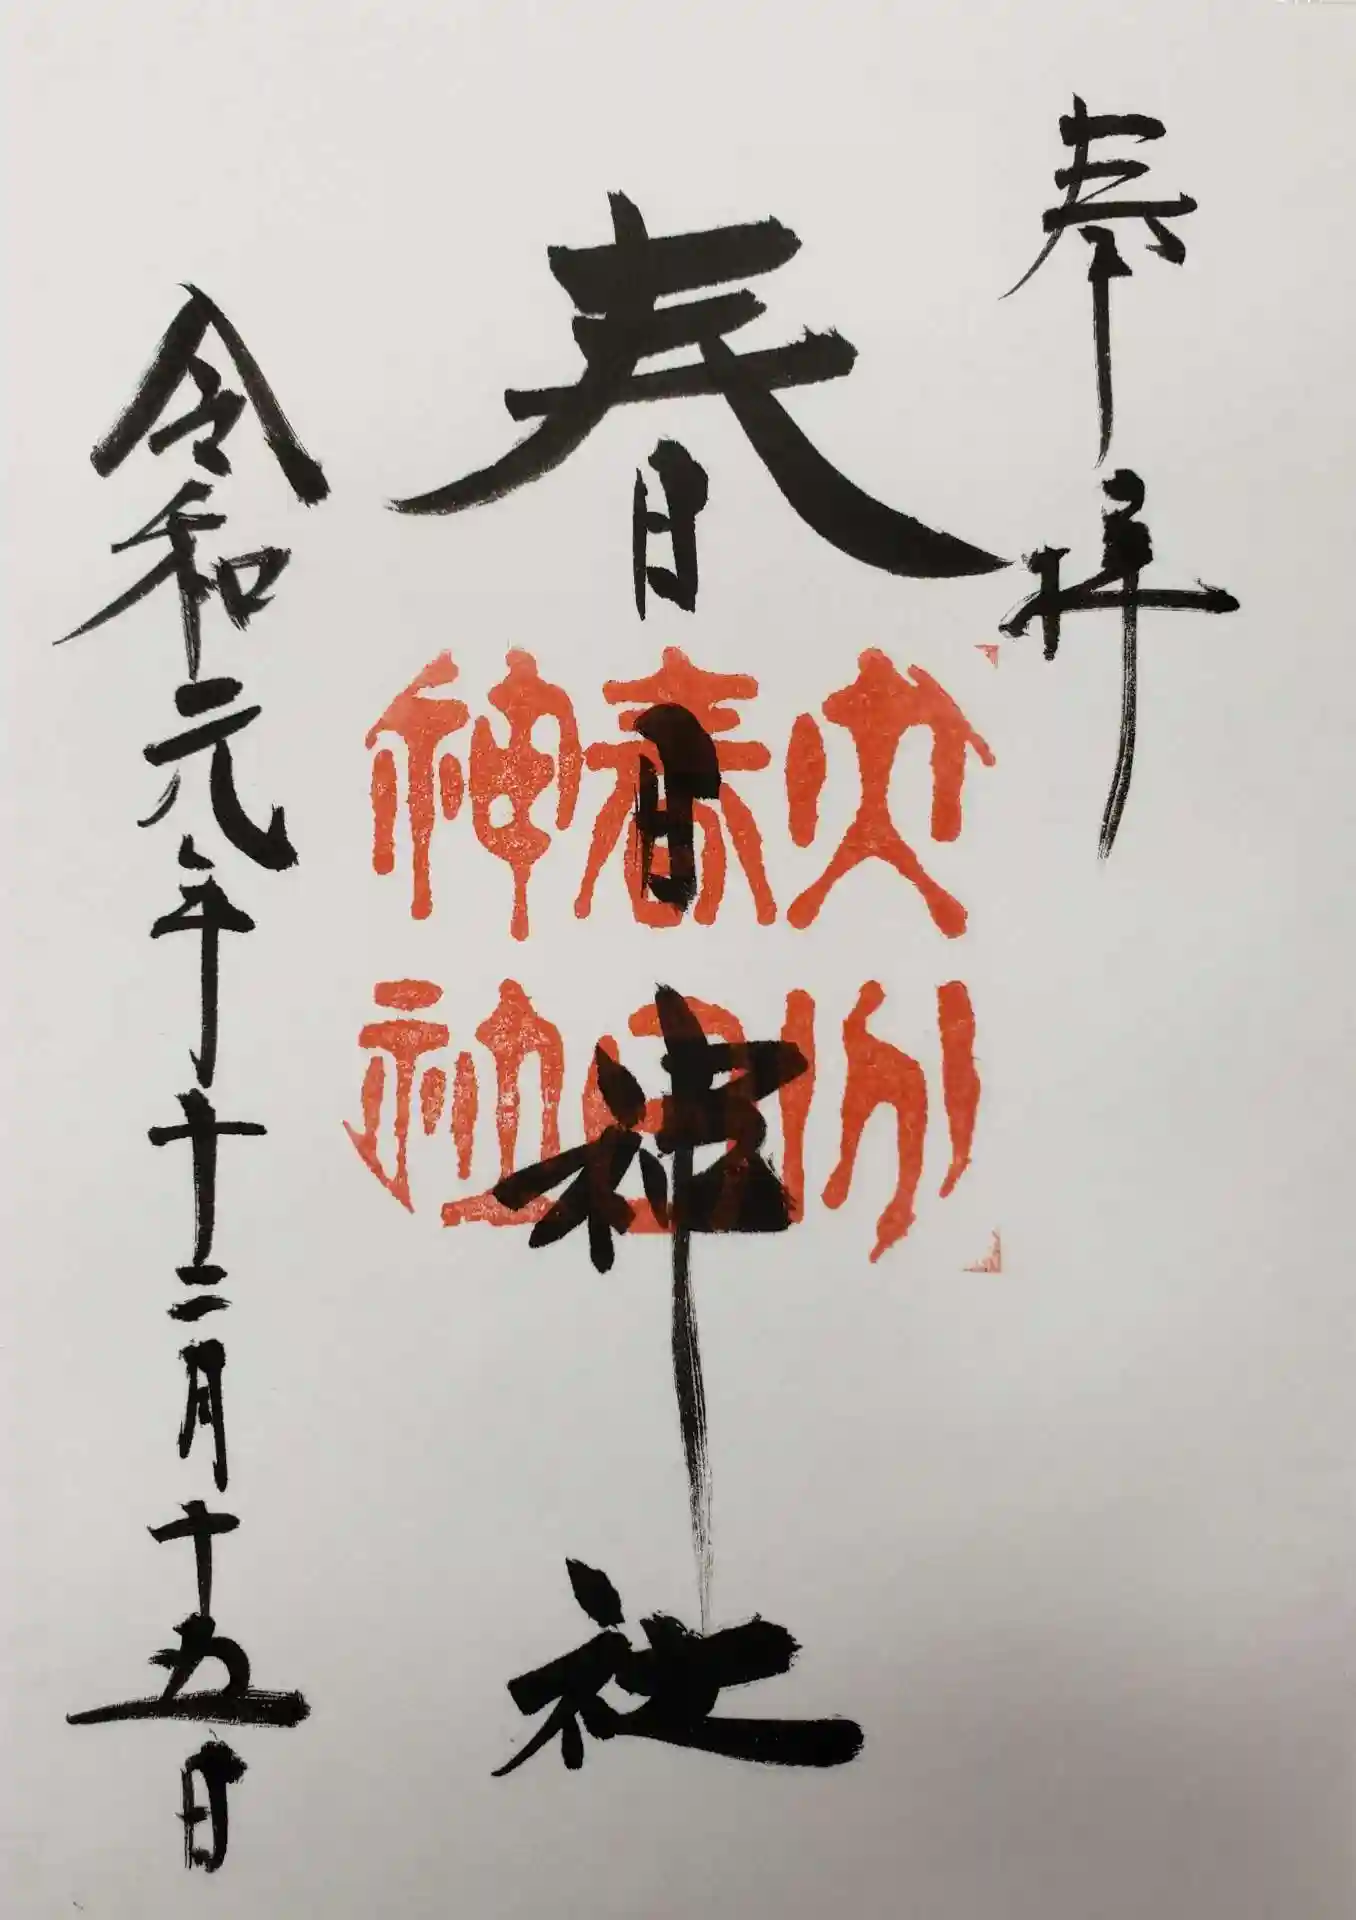 奉拝
春日神社
大分春日神社
令和元年十二月十五日